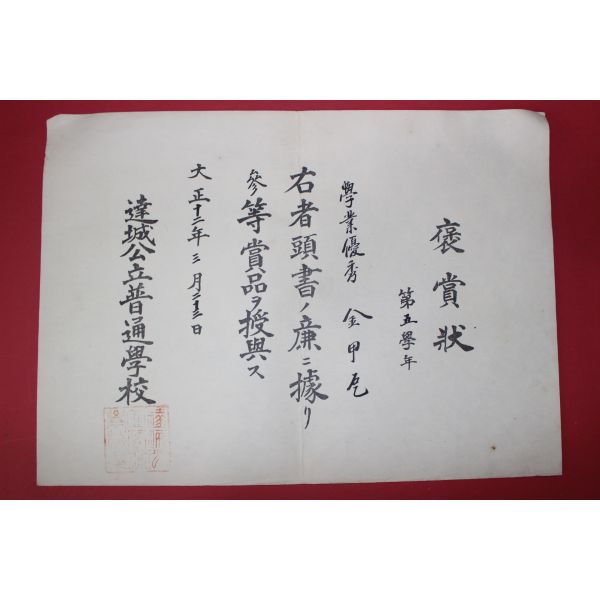 褒賞狀
第五學年
學業優秀 金甲
右者頭書ノ廉ニ據り
參等賞品ヲ授與ス
大正十二年三月二十三日
達城公立普通學校